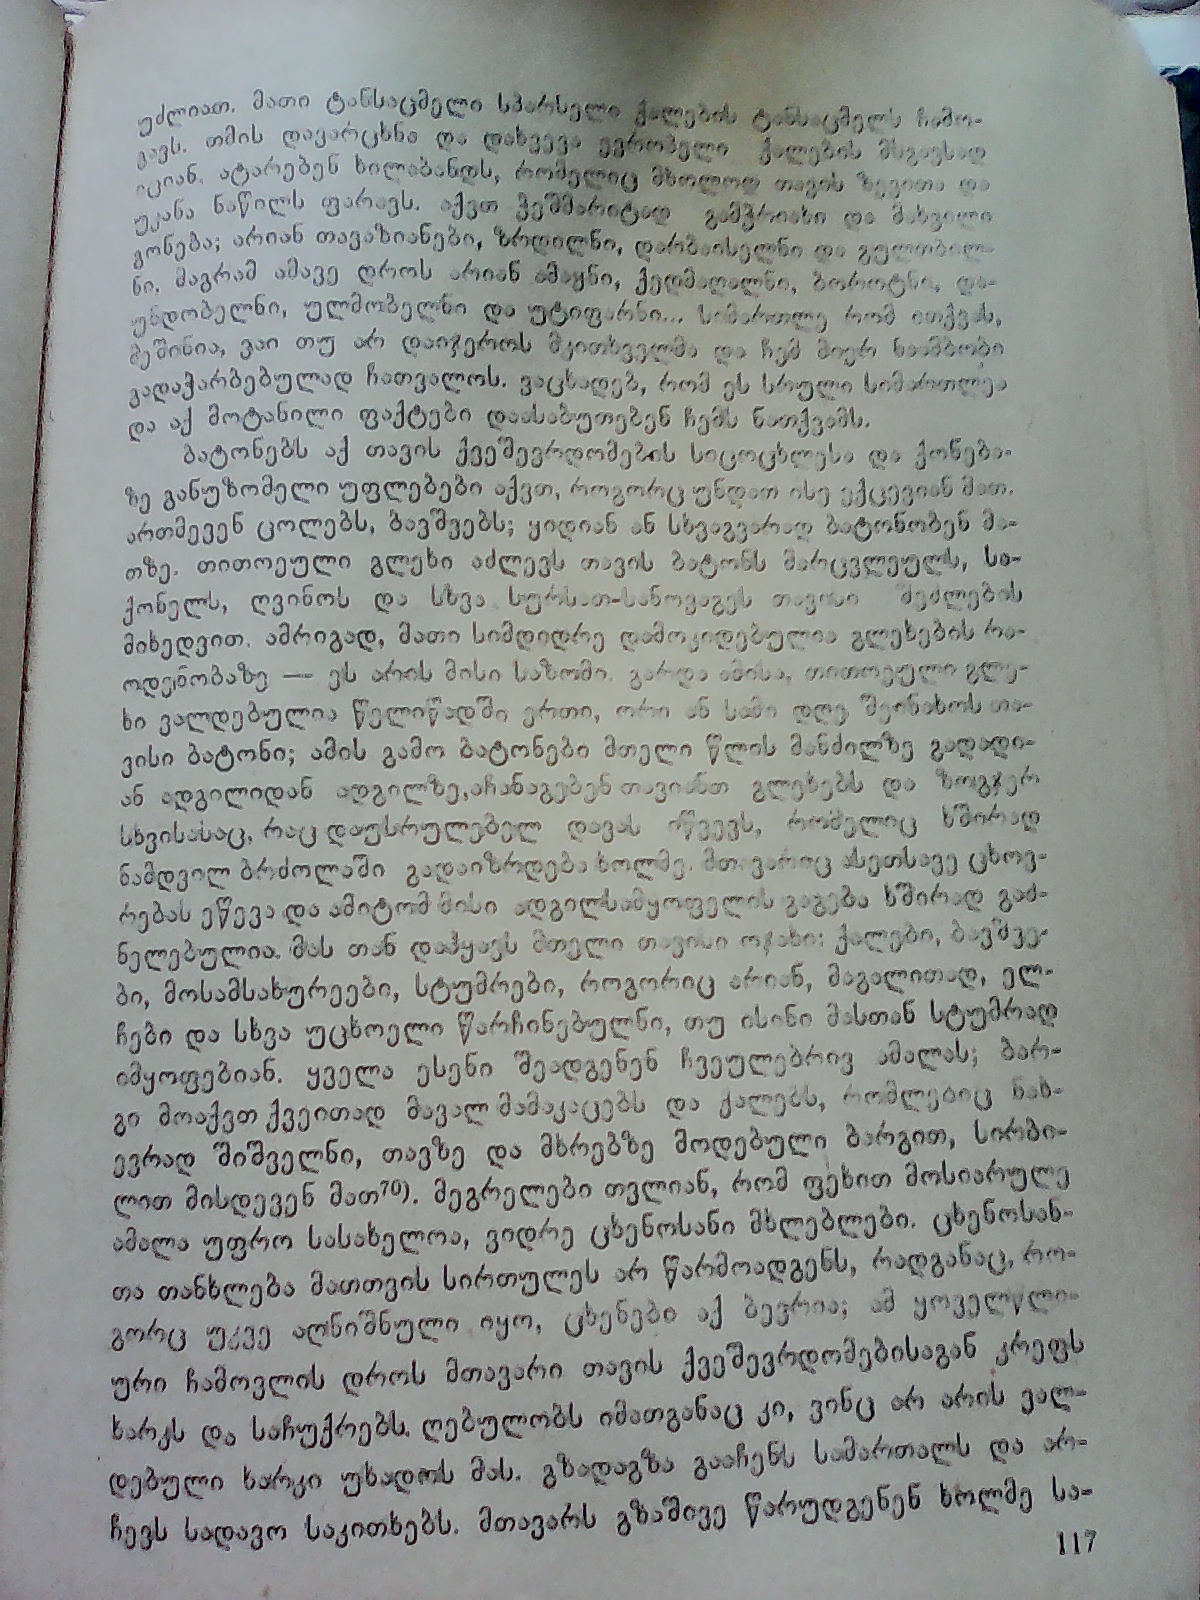 უძლიათ. მათი ტანსაცმელი სპარსელი ქალების ტანსაცმელს ჩამო-
გავს. თმის დავარცხნა და დახვევა ევროპელი ქალების მსგავსად
იციან. ატარებენ ხილაბანდს, რომელიც მხოლოდ თავის ზევითა და
უკანა ნაწილს ფარავს. აქვთ ჭეშმარიტად გამჭრიახი და მახვილი
გონება; არიან თავაზიანები, ზრდილნი, დარბაისელნი და გულთბილ-
ნი. მაგრამ ამავე დროს არიან ამაყნი, ქედმაღალნი, ბოროტნი, და-
უნდობელნი, ულმობელნი და უტიფარნი... სიმართლე რომ ითქვას,
მეშინია, ვაი თუ არ დაიჯეროს მკითხველმა და ჩემ მიერ ნაამბობი
გადაჭარბებულად ჩათვალოს. ვაცხადებ, რომ ეს სრული სიმართლეა
და აქ მოტანილი ფაქტები დაასაბუთებენ ჩემს ნათქვამს.
ბატონებს აქ თავის ქვეშევრდომების სიცოცხლესა და ქონება-
ზე განუზომელი უფლებები აქვთ, როგორც უნდათ ისე ექცევიან მათ.
ართმევენ ცოლებს, ბავშვებს; ყიდიან ან სხვაგვარად ბატონობენ მა-
თზე. თითოეული გლეხი აძლევს თავის ბატონს მარცვლეულს, სა-
ქონელს, ღვინოს და სხვა სურსათ-სანოვაგეს თავისი შეძლების
მიხედვით. ამრიგად, მათი სიმდიდრე დამოკიდებულია გლეხების რა-
ოდენობაზე — ეს არის მისი საზომი. გარდა ამისა, თითოეული გლე-
ხი ვალდებულია წელიწადში ერთი, ორი ან სამი დღე შეინახოს თა-
ვისი ბატონი; ამის გამო ბატონები მთელი წლის მანძილზე გადადი-
ან ადგილიდან ადგილზე, აჩანაგებენ თავიანთ გლეხებს და ზოგჯერ
სხვისასაც, რაც დაუსრულებელ დავას იწვევს, რომელიც ხშირად
ნამდვილ ბრძოლაში გადაიზრდება ხოლმე. მთავარიც ასეთსავე ცხოვ-
რებას ეწევა და ამიტომ მისი ადგილსამყოფელის გაგება ხშირად გაძ-
ნელებულია. მას თან დაჰყავს მთელი თავისი ოჯახი: ქალები, ბავშვე-
ბი, მოსამსახურეები, სტუმრები, როგორიც არიან, მაგალითად, ელ-
ჩები და სხვა უცხოელი წარჩინებულნი, თუ ისინი მასთან სტუმრად
იმყოფებიან. ყველა ესენი შეადგენენ ჩვეულებრივ ამალას; ბარ-
გი მოაქვთ ქვეითად მავალ მამაკაცებს და ქალებს, რომლებიც ნახ-
ევრად შიშველნი, თავზე და მხრებზე მოდებული ბარგით, სირბი-
ლით მისდევენ მათ⁷⁰). მეგრელები თვლიან, რომ ფეხით მოსიარულე
ამალა უფრო სასახელოა, ვიდრე ცხენოსანი მხლებლები. ცხენოსან-
თა თანხლება მათთვის სირთულეს არ წარმოადგენს, რადგანაც, რო-
გორც უკვე აღნიშნული იყო, ცხენები აქ ბევრია; ამ ყოველწლი-
ური ჩამოვლის დროს მთავარი თავის ქვეშევრდომებისაგან კრეფს
ხარკს და საჩუქრებს. ღებულობს იმათგანაც კი, ვინც არ არის ვალ-
დებული ხარკი უხადოს მას. გზადაგზა გააჩენს სამართალს და არ-
ჩევს სადავო საკითხებს. მთავარს გზაშივე წარუდგენენ ხოლმე სა-
117